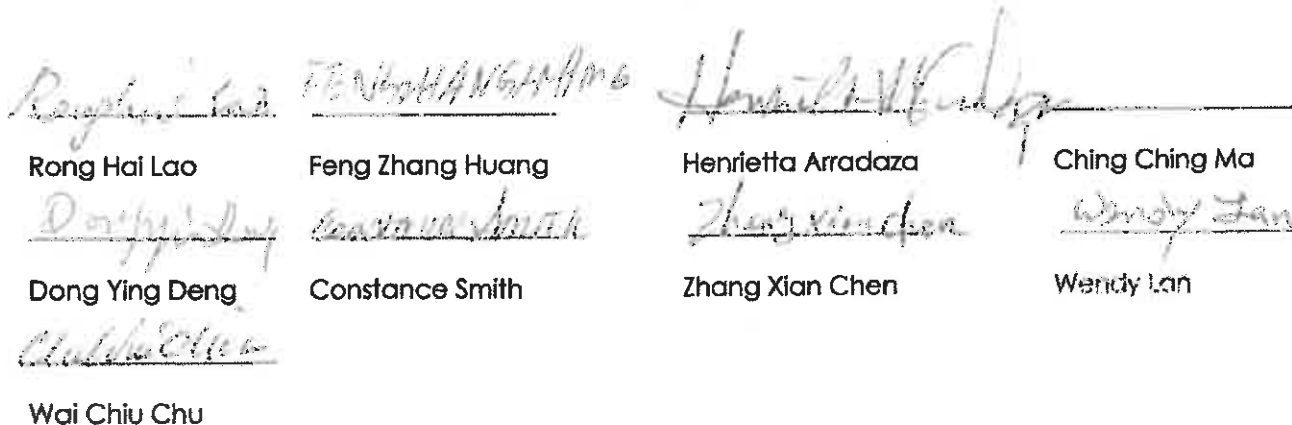 FENGZHANGHUANG
Rong Hai Lao Feng Zhang Huang Henrietta Arradaza Ching Ching Ma
Constance Smith Zhang Xian Chen Wendy Lan
Dong Ying Deng Constance Smith Zhang Xian Chen Wendy Lan
Wai Chiu Chu